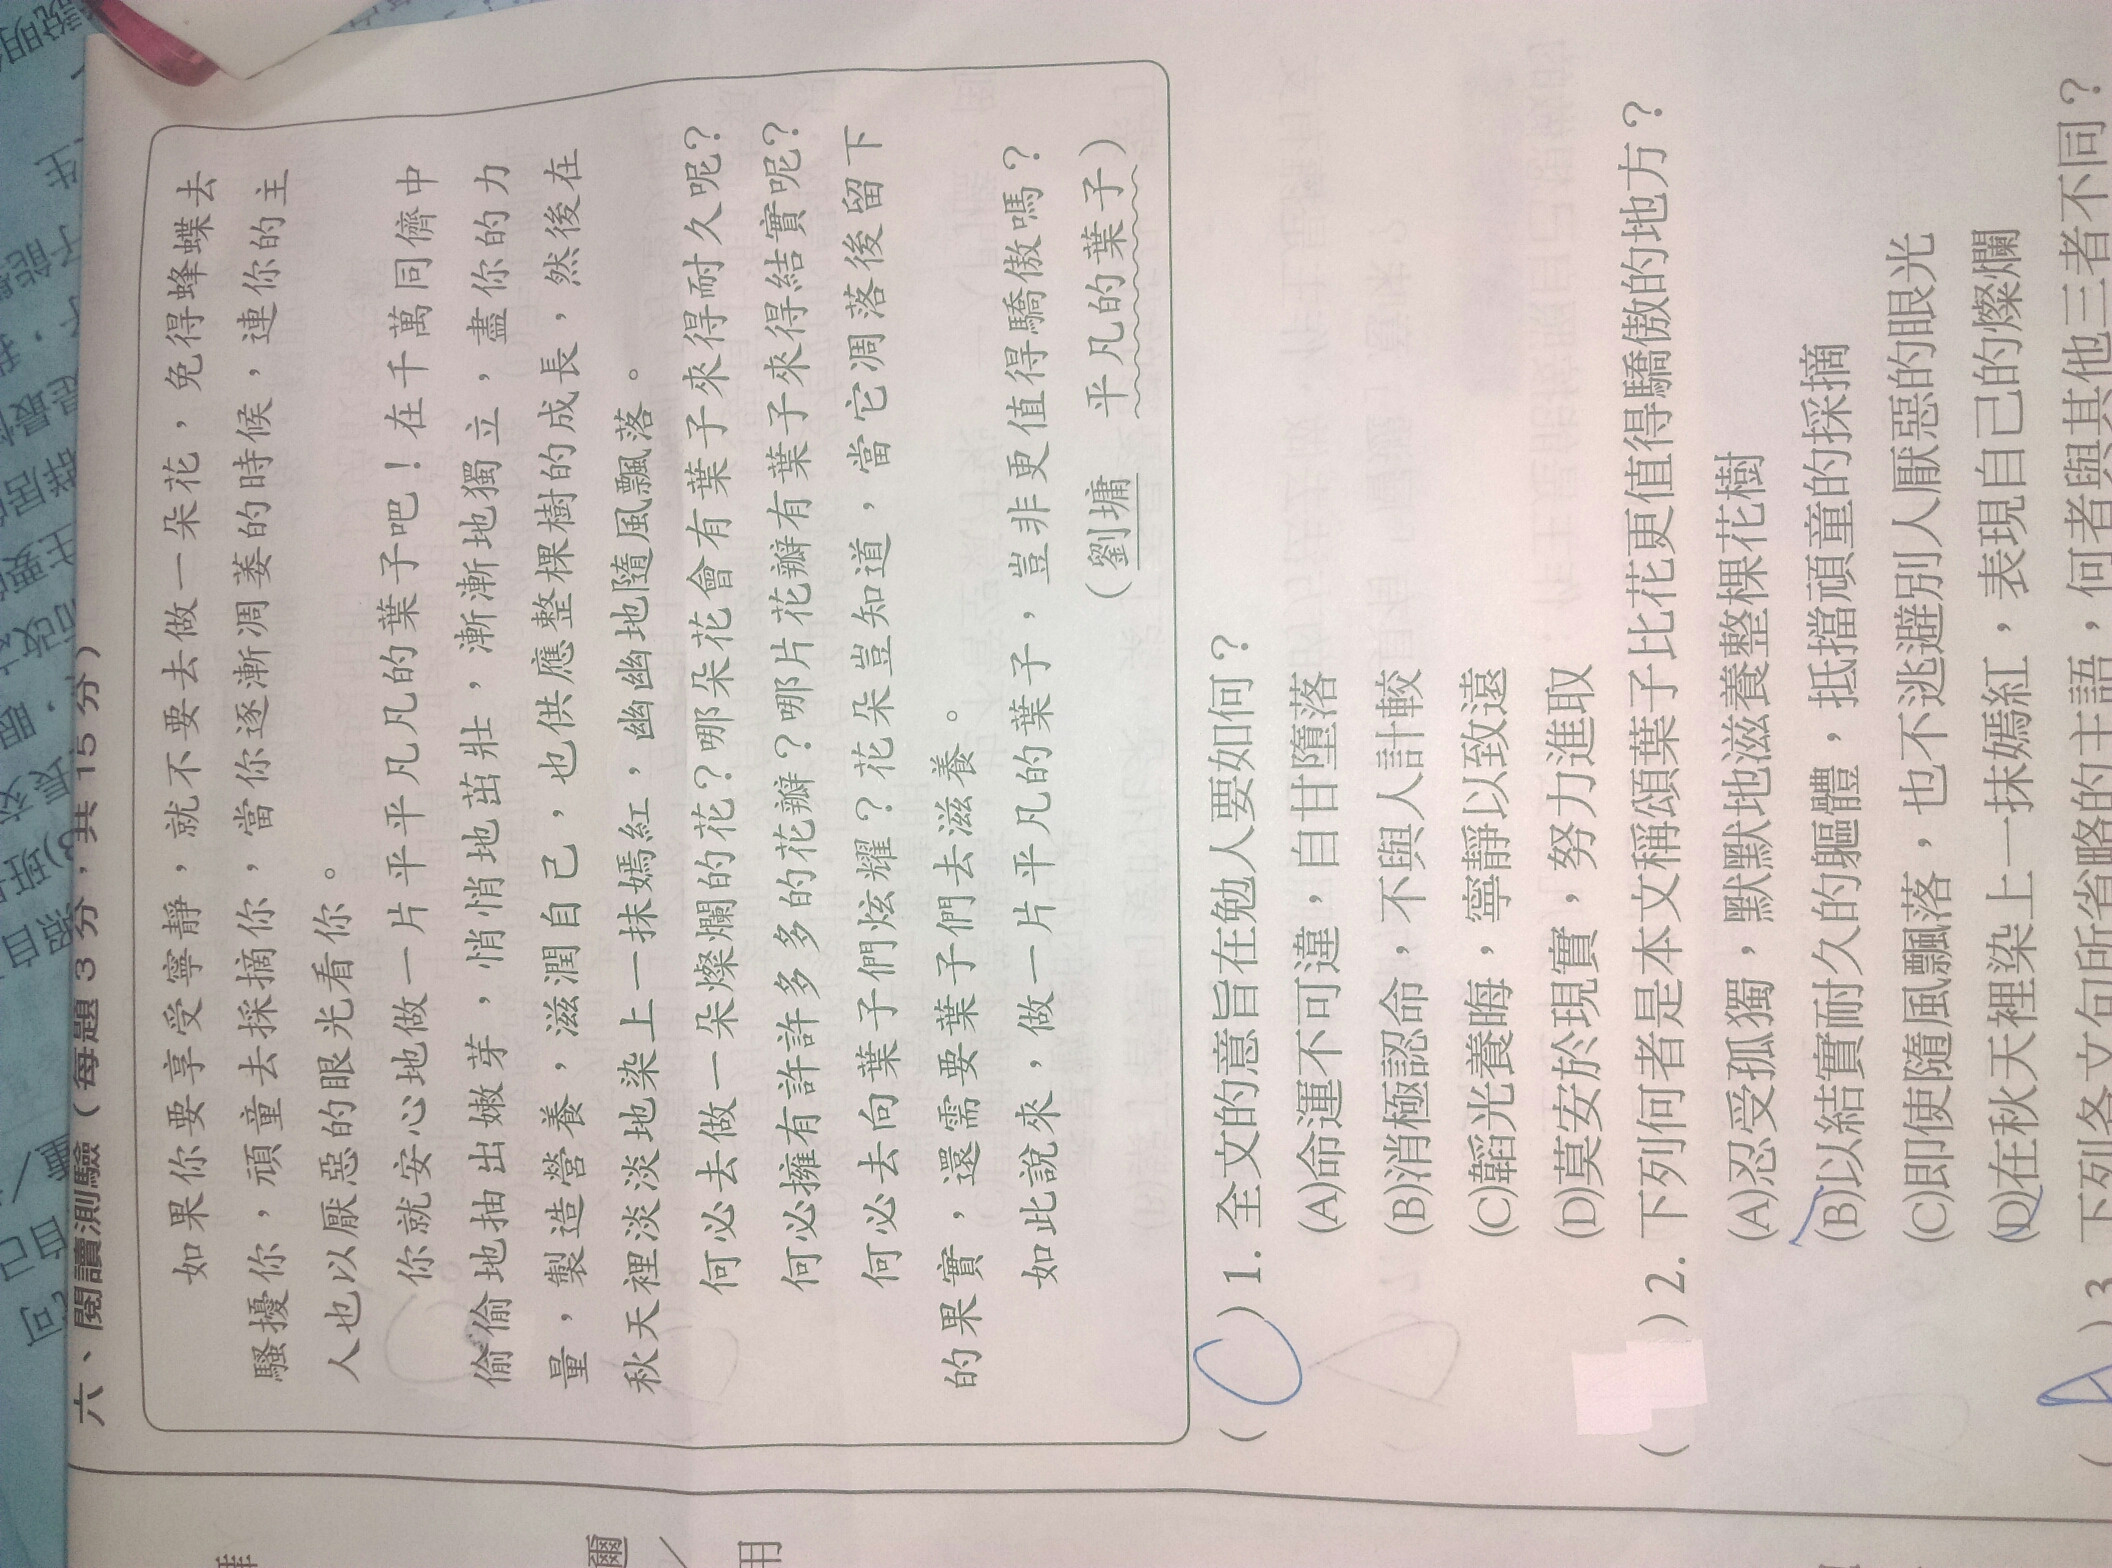 六、閱讀測驗（每題 3 分，共 15 分）
如果你要享受寧靜，就不要去做一朵花，免得蜂蝶去
騷擾你，頑童去採摘你，當你逐漸凋萎的時候，連你的主
人也以厭惡的眼光看你。
你就安心地做一片平平凡凡的葉子吧！在千萬同儕中
偷偷地抽出嫩芽，悄悄地茁壯，漸漸地獨立，盡你的力
量，製造營養，滋潤自己，也供應整棵樹的成長，然後在
秋天裡淡淡地染上一抹嫣紅，幽幽地隨風飄落。
何必去做一朵燦爛的花？哪朵花會有葉子來得耐久呢？
何必擁有許許多多的花瓣？哪片花瓣有葉子來得結實呢？
何必去向葉子們炫耀？花朵豈知道，當它凋落後留下
的果實，還需要葉子們去滋養。
如此說來，做一片平凡的葉子，豈非更值得驕傲嗎？
（劉墉　平凡的葉子）
（C）1. 全文的意旨在勉人要如何？
(A)命運不可違，自甘墮落
(B)消極認命，不與人計較
(C)韜光養晦，寧靜以致遠
(D)莫安於現實，努力進取
（　）2. 下列何者是本文稱頌葉子比花更值得驕傲的地方？
(A)忍受孤獨，默默地滋養整棵花樹
(B)以結實耐久的軀體，抵擋頑童的採摘
(C)即使隨風飄落，也不逃避別人厭惡的眼光
(D)在秋天裡染上一抹嫣紅，表現自己的燦爛
（A）3. 下列各文句所省略的主語，何者與其他三者不同？